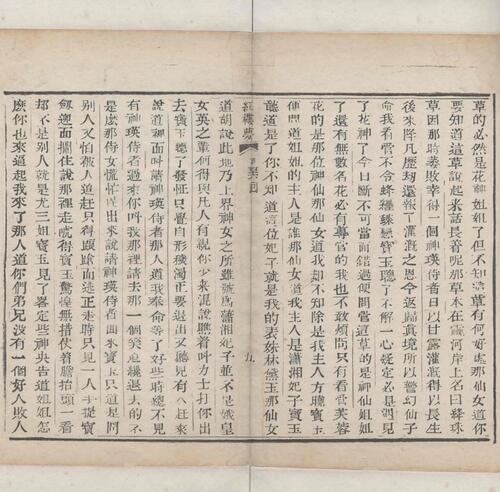 草的必然是花神姐姐了但不知這草有何好處那仙女道你
要知道這草說起來話長着呢那草本在靈河岸上名曰絳珠
草因那時萎敗幸得一個神瑛侍者日以甘露灌溉得以長生
後來降凡歷刼還報了灌溉之恩今返歸真境所以警幻仙子
命我看管不令蜂纏蝶戀寶玉聽了不解一心疑定必是遇見
了花神了今日斷不可當面錯過便問管這草的是神仙姐姐
了還有無數名花必有專管的我也不敢煩問只有看管芙蓉
花的是那位神仙那仙女道我却不知除是我主人方曉寶玉
便問道姐姐的主人是誰那仙女道我主人是瀟湘妃子寶玉
聽道是了你不知道這位妃子就是我的表妹林黛玉那仙女
道胡說此地乃上界神女之所雖號為瀟湘妃子並不是娥皇
女英之輩何得與凡人有親你少來混說瞧着叫力士打你出
去寶玉聽了發怔只覺自形穢濁正要退出又聽見有人赶來
說道裡面叫請神瑛侍者那人道我奉命等了好些時總不見
有神瑛侍者過來你叫我那裡請去那一個笑道纔退去的不
是麽那侍女慌忙赶出來說請神瑛侍者回來寶玉只道是問
别人又怕被人追赶只得踉蹌而逃正走時只見一人手提寶
劍迎面攔住說那裡走唬得寶玉驚惶無措仗着膽抬頭一看
却不是别人就是尤三姐寶玉見了畧定些神央告道姐姐怎
麽你也來逼起我來了那人道你們弟兄没有一個好人敗人
紅樓夢
五